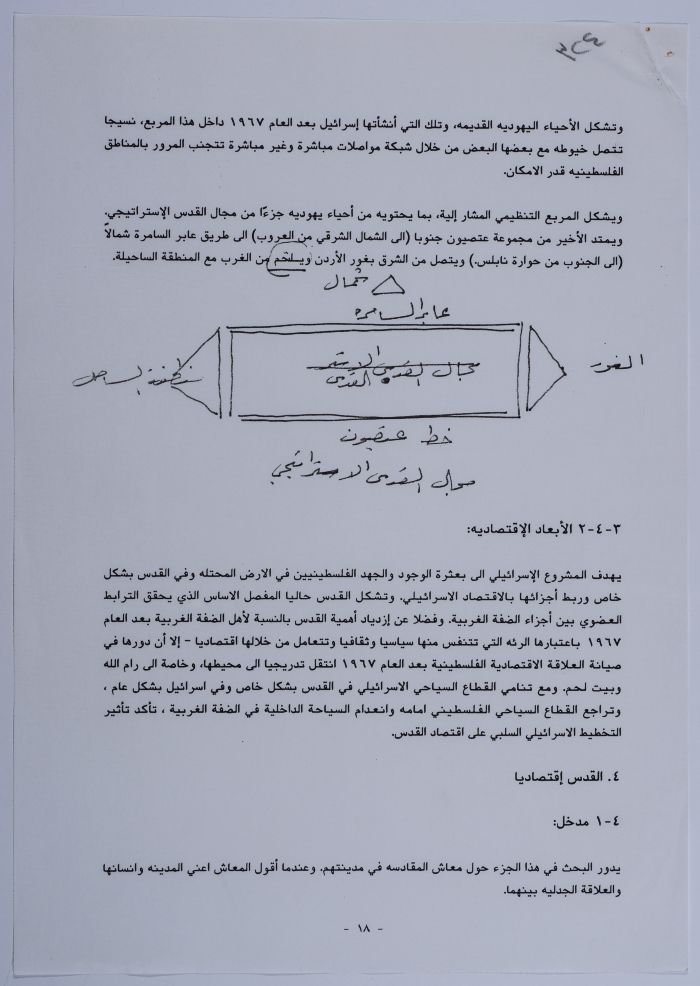 ٣٤٤
وتشكل الأحياء اليهوديه القديمه، وتلك التي أنشأتها إسرائيل بعد العام ١٩٦٧ داخل هذا المربع، نسيجا
تتصل خيوطه مع بعضها البعض من خلال شبكة مواصلات مباشرة وغير مباشرة تتجنب المرور بالمناطق
الفلسطينيه قدر الامكان.
ويشكل المربع التنظيمي المشار إلية، بما يحتويه من أحياء يهوديه جزءًا من مجال القدس الإستراتيجي.
ويمتد الأخير من مجموعة عتصيون جنوبا (الى الشمال الشرقي من العروب) الى طريق عابر السامرة شمالاً
(الى الجنوب من حوارة نابلس.) ويتصل من الشرق بغور الأردن ويلتحم من الغرب مع المنطقة الساحيلة.
شمال
عابر السامره
الغور
مجال القدس الاستر
القدس
منطقة الساحل
خط عتصيون
مجال القدس الاستراتيجي
٣-٤-٢ الأبعاد الإقتصاديه:
يهدف المشروع الإسرائيلي الى بعثرة الوجود والجهد الفلسطينيين في الارض المحتله وفي القدس بشكل
خاص وربط أجزائها بالاقتصاد الاسرائيلي. وتشكل القدس حاليا المفصل الاساس الذي يحقق الترابط
العضوي بين أجزاء الضفة الغربية. وفضلا عن إزدياد أهمية القدس بالنسبة لأهل الضفة الغربية بعد العام
١٩٦٧ باعتبارها الرئه التي تتنفس منها سياسيا وثقافيا وتتعامل من خلالها اقتصاديا - إلا أن دورها في
صيانة العلاقة الاقتصادية الفلسطينية بعد العام ١٩٦٧ انتقل تدريجيا الى محيطها، وخاصة الى رام الله
وبيت لحم. ومع تنامي القطاع السياحي الاسرائيلي في القدس بشكل خاص وفي اسرائيل بشكل عام ،
وتراجع القطاع السياحي الفلسطيني امامه وانعدام السياحة الداخلية في الضفة الغربية ، تأكد تأثير
التخطيط الاسرائيلي السلبي على اقتصاد القدس.
٤. القدس إقتصاديا
٤-١ مدخل:
يدور البحث في هذا الجزء حول معاش المقادسه في مدينتهم. وعندما أقول المعاش اعني المدينه وانسانها
والعلاقة الجدليه بينهما.
- ١٨ -